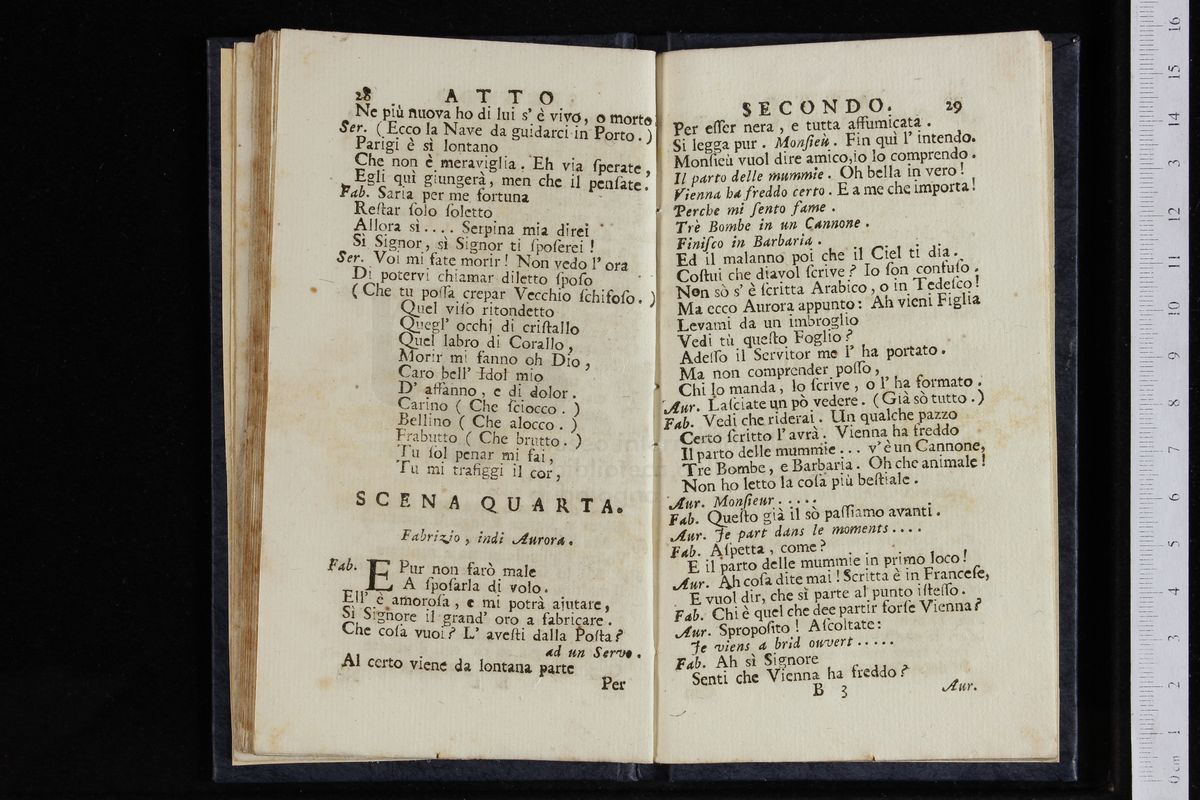 28 ATTO
Ne più nuova ho di lui s' è vivo, o morto
Ser. ( Ecco la Nave da guidarci in Porto. )
Parigi è sì lontano
Che non è meraviglia. Eh via ſperate,
Egli quì giungerà, men che il penſate.
Fab. Saria per me fortuna
Reſtar ſolo ſoletto
Allora sì.... Serpina mia direi
Sì Signor, sì Signor ti ſpoſerei !
Ser. Voi mi fate morir ! Non vedo l' ora
Di potervi chiamar diletto ſpoſo
( Che tu poſſa crepar Vecchio ſchifoſo. )
Quel viſo ritondetto
Quegl' occhj di criſtallo
Quel labro di Corallo,
Morir mi fanno oh Dio,
Caro bell' Idol mio
D' affanno, e di dolor.
Carino ( Che ſciocco. )
Bellino ( Che alocco. )
Frabutto ( Che brutto. )
Tu ſol penar mi fai,
Tu mi trafiggi il cor,
SCENA QUARTA.
Fabrizio, indi Aurora.
Fab. E Pur non farò male
A ſpoſarla di volo.
Ell' è amoroſa, e mi potrà ajutare,
Sì Signore il grand' oro a fabricare.
Che coſa vuoi? L' aveſti dalla Poſta?
ad un Servo.
Al certo viene da lontana parte
Per
SECONDO. 29
Per eſſer nera, e tutta affumicata.
Si legga pur. Monſieù. Fin quì l' intendo.
Monſieù vuol dire amico, io lo comprendo.
Il parto delle mummie. Oh bella in vero!
Vienna ha freddo certo. E a me che importa!
Perche mi ſento fame.
Trè Bombe in un Cannone.
Finiſco in Barbaria.
Ed il malanno poi che il Ciel ti dia.
Coſtui che diavol ſcrive? Io ſon confuſo.
Non sò s' è ſcritta Arabico, o in Tedeſco!
Ma ecco Aurora appunto: Ah vieni Figlia
Levami da un imbroglio
Vedi tù queſto Foglio?
Adeſſo il Servitor me l' ha portato.
Ma non comprender poſſo,
Chi lo manda, lo ſcrive, o l' ha formato.
Aur. Laſciate un pò vedere. (Già sò tutto.)
Fab. Vedi che riderai. Un qualche pazzo
Certo ſcritto l' avrà. Vienna ha freddo
Il parto delle mummie... v' è un Cannone,
Tre Bombe, e Barbaria. Oh che animale!
Non ho letto la coſa più beſtiale.
Aur. Monſieur.....
Fab. Queſto già il sò paſſiamo avanti.
Aur. Je part dans le moments....
Fab. Aſpetta, come?
E il parto delle mummie in primo loco!
Aur. Ah coſa dite mai! Scritta è in Franceſe,
E vuol dir, che sì parte al punto iſteſſo.
Fab. Chi è quel che dee partir forſe Vienna?
Aur. Spropoſito! Aſcoltate:
Je viens a brid ouvert.....
Fab. Ah sì Signore
Senti che Vienna ha freddo?
B 3 Aur.
0 cm 1 2 3 4 5 6 7 8 9 10 11 12 13 14 15 16